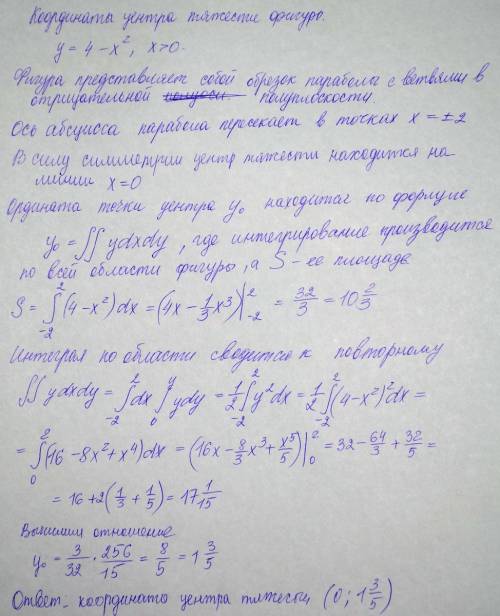 Координаты центра тяжести фигуро.
y = 4 - x², x>0.
Фигура представляет собой обрезок параболы с ветвями в
отрицательной полуоси. полуплоскости.
Ось абсцисса парабола пересекает в точках x = ±2
В силу симметрии центр тяжести находится на
линии x=0
Ордината точки центра y₀ находится по формуле
y₀ = ∬ ydxdy, где интегрирование производится
по всей области фигуры, а S - ее площадь
S = ∫₋₂² (4-x²)dx = (4x - 1/3 x³)|₋₂² = 32/3 = 10 2/3
Интеграл по области сводится к повторному
∬ ydxdy = ∫₋₂² dx ∫₀^y ydy = 1/2 ∫₋₂² y²dx = 1/2 ∫₋₂² (4-x²)²dx =
= ∫₀² (16 - 8x² + x⁴)dx = (16x - 8/3 x³ + x⁵/5)|₀² = 32 - 64/3 + 32/5 =
= 16 + 2(1/3 + 1/5) = 17 1/15
Вычислим отношение
y₀ = 3/32 · 256/15 = 8/5 = 1 3/5
Ответ - координата центра тяжести (0; 1 3/5)